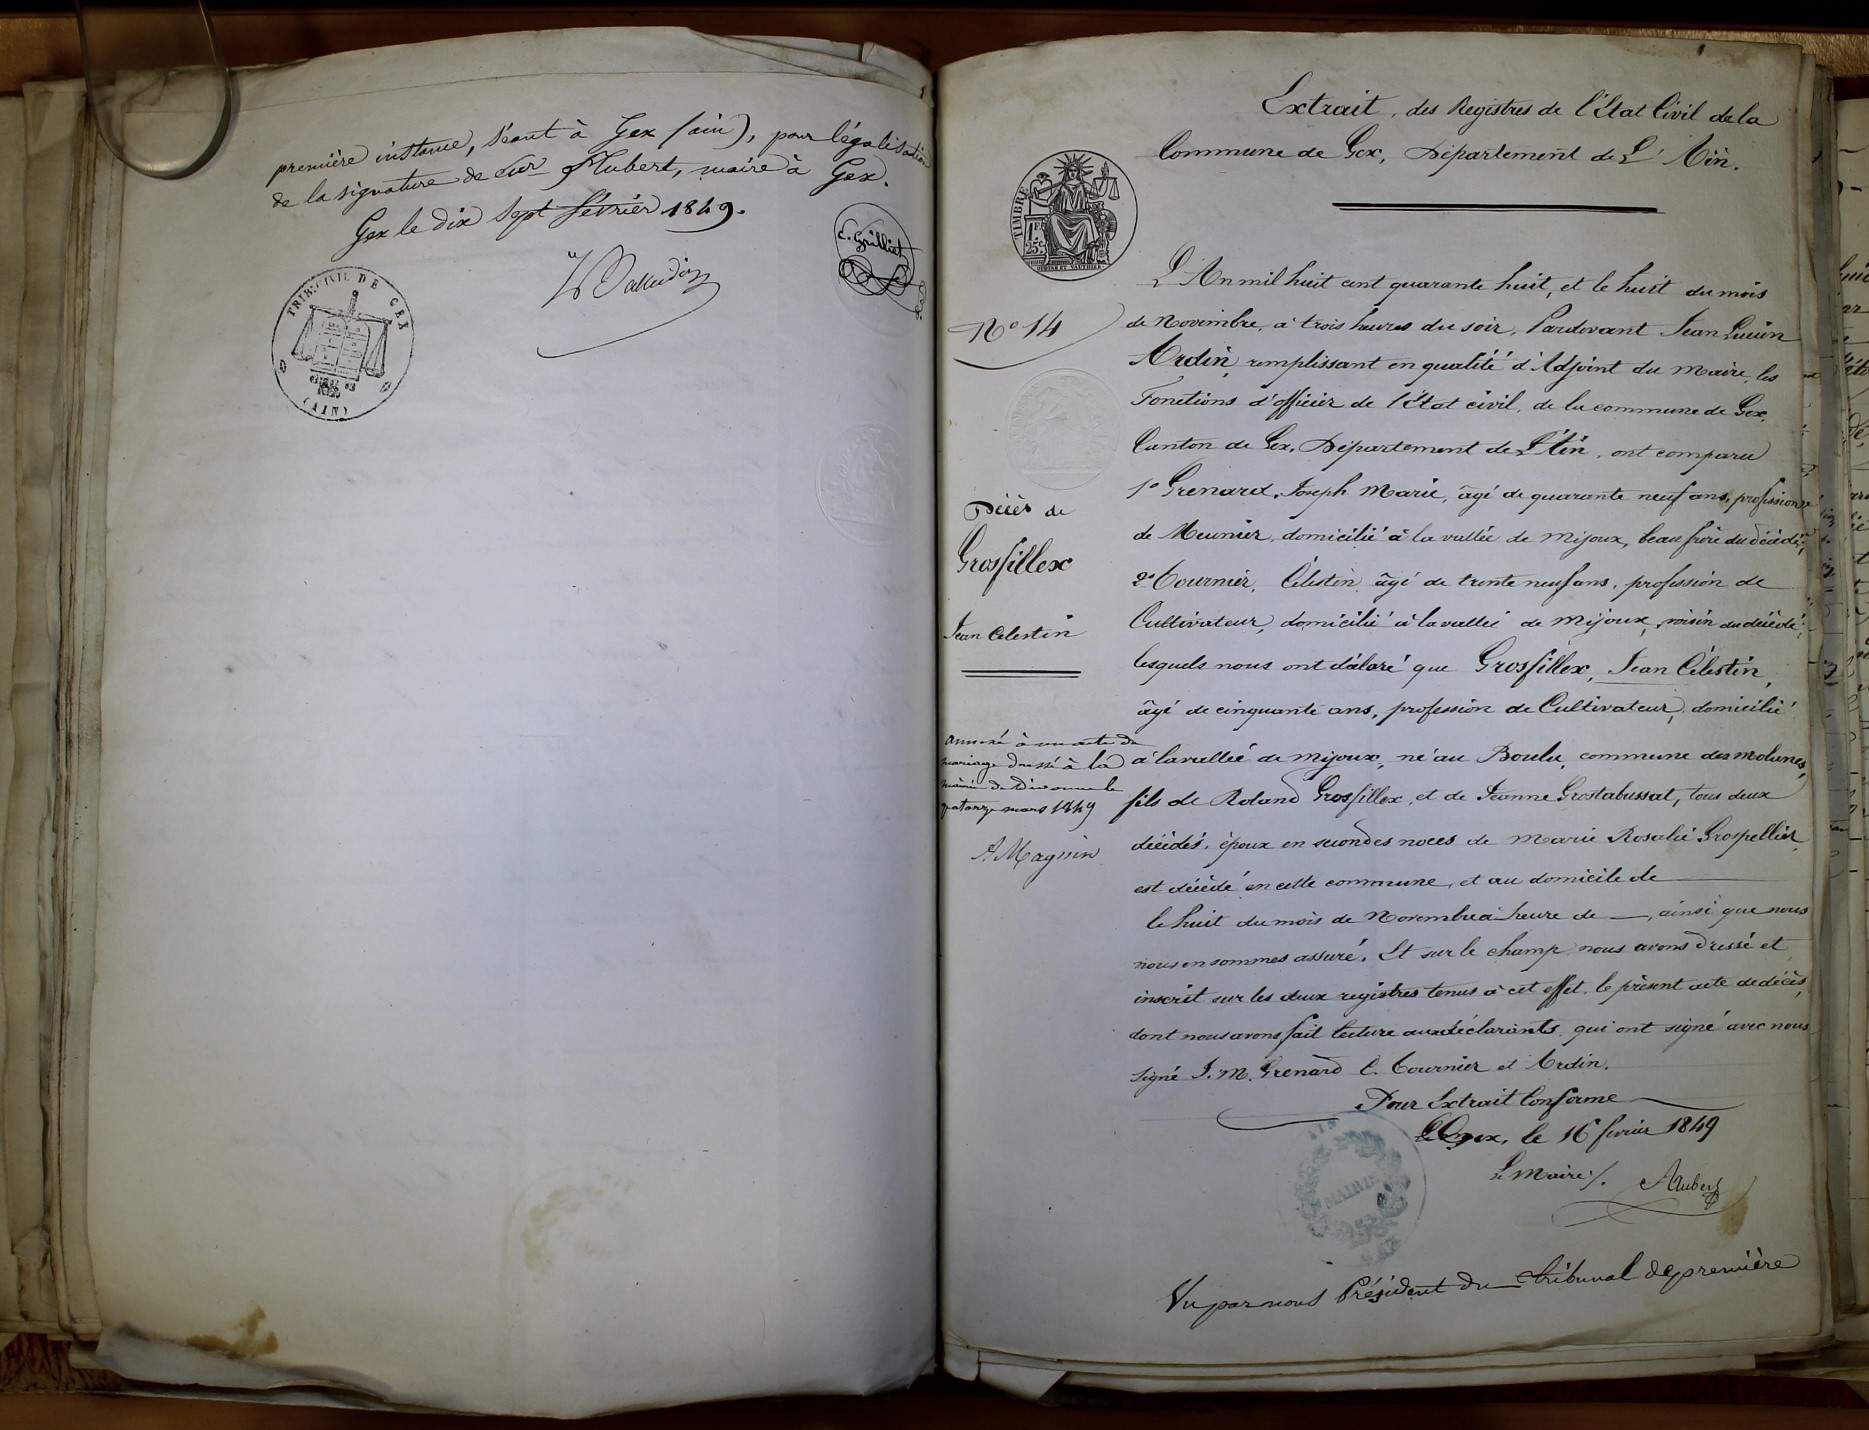 première instance, séant à Gex (ain), pour légalisation
de la signature de Sieur Hubert, maire à Gex.
Gex le dix sept février 1849.
E. Grilliet
TRIB. CIVIL DE GEX
(AIN)
Extrait, des Registres de l'État Civil de la
Commune de Gex, Département de L'Ain.
TIMBRE
1F.
25c
L'An mil huit cent quarante huit, et le huit du mois
de Novembre, à trois heures du soir, Pardevant Jean Lucien
Ardin, remplissant en qualité d'Adjoint du Maire, les
Fonctions d'officier de l'État civil, de la commune de Gex,
Canton de Gex, Département de L'Ain, ont comparu
1º Grenard, Joseph Marie, âgé de quarante neuf ans, profession
de Meunier, domicilié à la vallée de Mijoux, beau frère du décédé;
2º Tournier, Célestin, âgé de trente neuf ans, profession de
Cultivateur, domicilié à la vallée de Mijoux, voisin du décédé;
lesquels nous ont déclaré que Grosfillex, Jean Célestin,
âgé de cinquante ans, profession de Cultivateur, domicilié
à la vallée de Mijoux, né au Boulu, commune des Molunes,
fils de Roland Grosfillex, et de Jeanne Grostabussat, tous deux
décédés, époux en secondes noces de Marie Rosalie Grospellier,
est décédé en cette commune, et au domicile de
le huit du mois de Novembre à heure de —, ainsi que nous
nous en sommes assuré. Et sur le champ nous avons dressé et
inscrit sur les deux registres tenus à cet effet le présent acte de décès,
dont nous avons fait lecture aux déclarants, qui ont signé avec nous
Signé J. M. Grenard C. Tournier et Ardin.
Pour Extrait Conforme
Gex, le 16 février 1849
Le Maire /. Hubert
MAIRIE
Vu par nous Président du tribunal de première
Nº 14
Décès de
Grosfillex
Jean Celestin
annexé à un acte de
mariage dressé à la
mairie de Divonne le
quatorze mars 1849
A Magnin